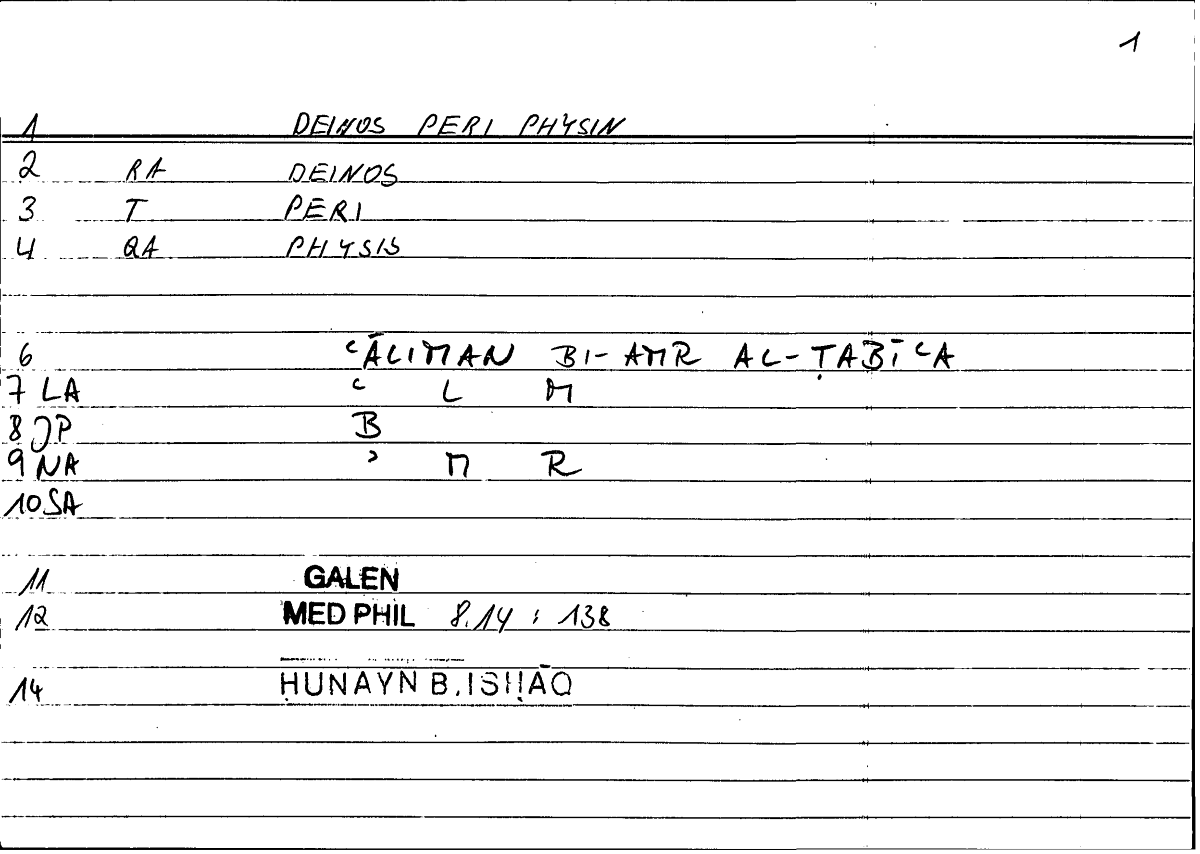 1
1 DEINOS PERI PHYSIN
2 RA DEINOS
3 T PERI
4 QA PHYSIS
6 ʿĀLIMAN BI-AMR AL-ṬABĪʿA
7 LA ʿ L M
8 JP B
9 NA ʾ M R
10 SA
11 GALEN
12 MED PHIL 8.14 : 138
14 ḤUNAYN B. ISḤĀQ